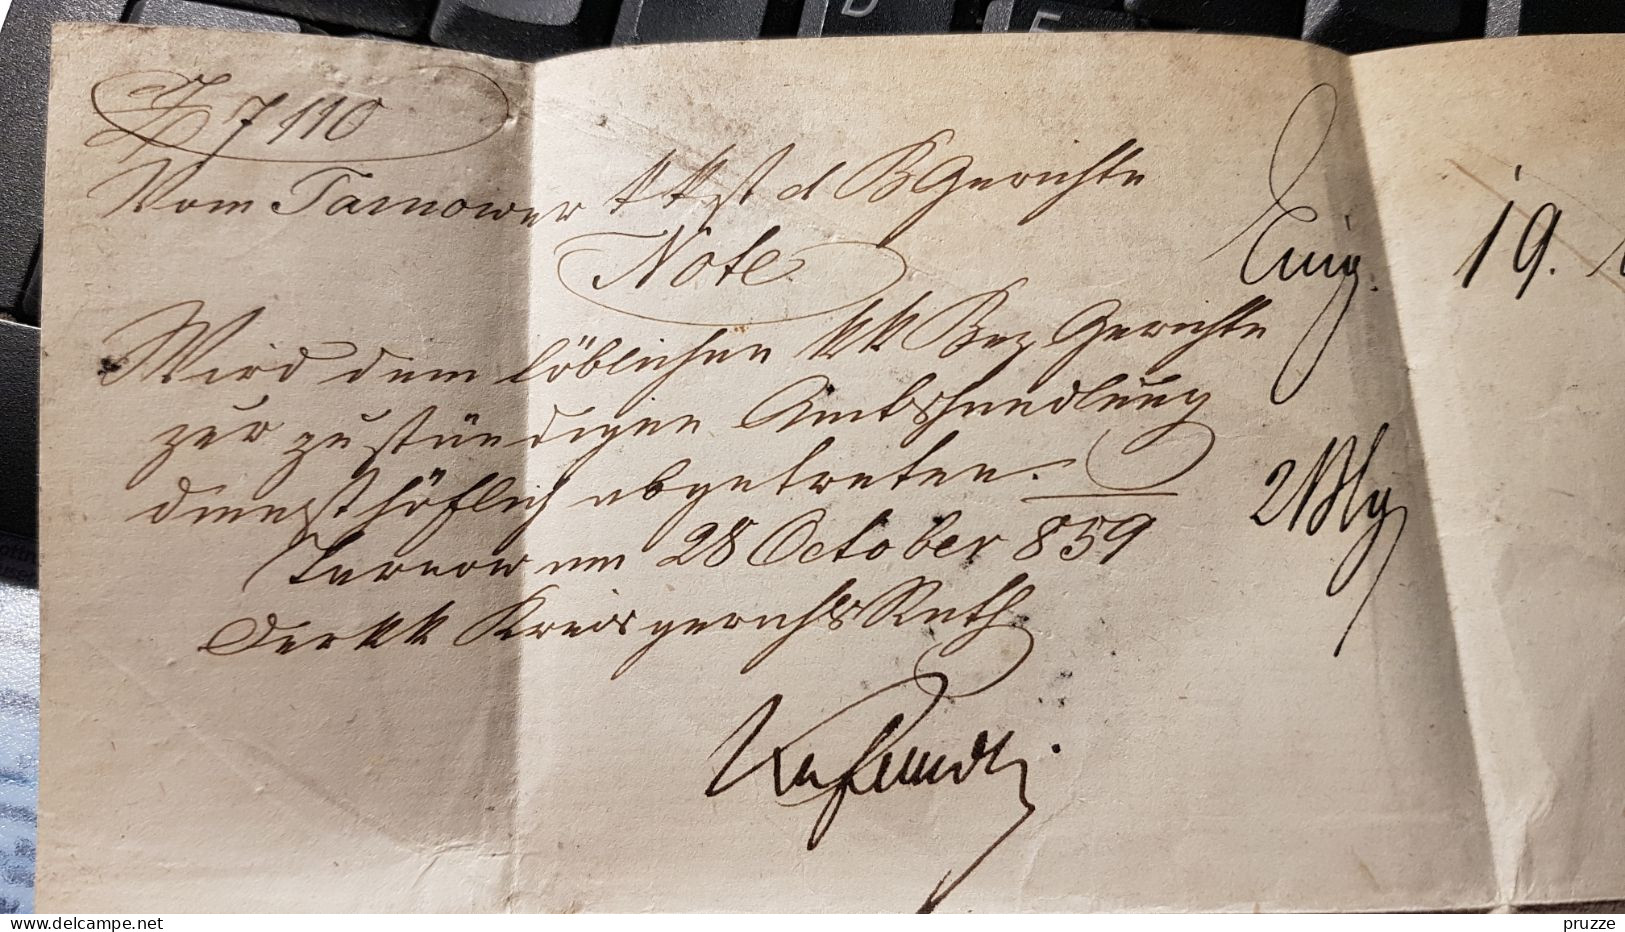 Z 7110
Vom Tarnower kk st d B Gerichte
Note
Wird dem löblichen kk Bez Gerichte
zur zuständigen Amtshandlung
diensthöflich abgetreten.
Tarnow am 28 October 859
Der kk Kreisgerichts Rath
Eing. 19.
2 Blg
D
pruzze